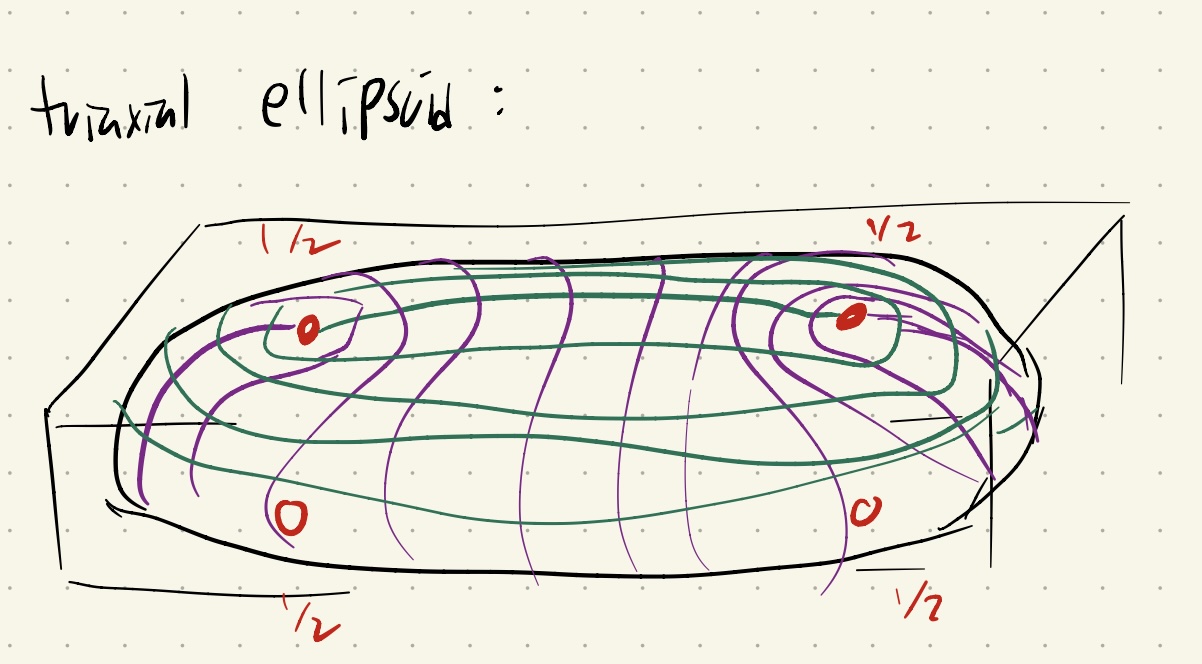 triaxial ellipsoid :
1/2 1/2
1/2 1/2